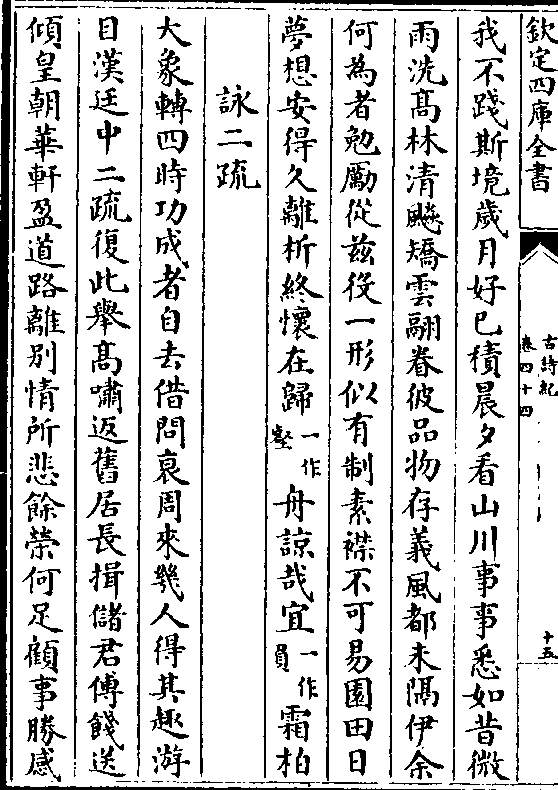 欽定四庫全書
古詩紀
卷四十四
十五
我不踐斯境歲月好已積晨夕看山川事事悉如昔微
雨洗髙林清飈矯雲翮眷彼品物存義風都未隔伊余
何為者勉勵從兹役一形似有制素襟不可易園田日
夢想安得久離析終懷在歸一作壑舟諒哉宜一作員霜柏
詠二疏
大象轉四時功成者自去借問衰周來幾人得其趣游
目漢廷中二疏復此舉髙嘯返舊居長揖儲君傅餞送
傾皇朝華軒盈道路離别情所悲餘榮何足顧事勝感